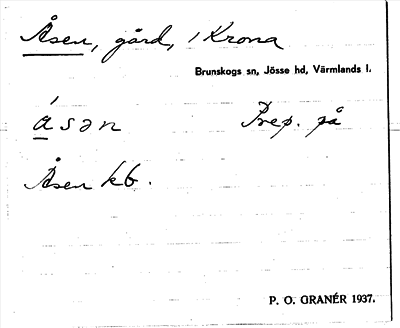 Åsen, gård, i Krona
Brunskogs sn, Jösse hd, Värmlands l.
ǻsən Prep. på
Åsen kb.
P. O. GRANÉR 1937.